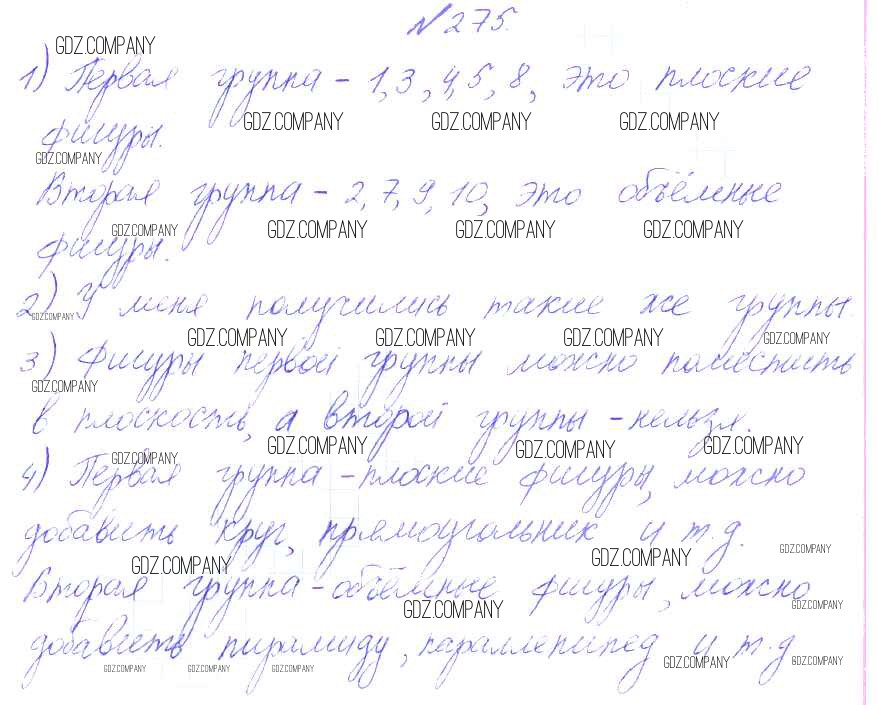 № 275.
1) Первая группа – 1, 3, 4, 5, 8, это плоские
фигуры.
Вторая группа – 2, 7, 9, 10, это объёмные
фигуры.
2) У меня получились такие же группы.
3) Фигуры первой группы можно поместить
в плоскость, а второй группы – нельзя.
4) Первая группа – плоские фигуры, можно
добавить круг, прямоугольник и т.д.
Вторая группа – объёмные фигуры, можно
добавить пирамиду, параллепипед и т.д
GDZ.COMPANY
GDZ.COMPANY GDZ.COMPANY GDZ.COMPANY
GDZ.COMPANY
GDZ.COMPANY GDZ.COMPANY GDZ.COMPANY GDZ.COMPANY
GDZ.COMPANY
GDZ.COMPANY GDZ.COMPANY GDZ.COMPANY GDZ.COMPANY
GDZ.COMPANY
GDZ.COMPANY GDZ.COMPANY GDZ.COMPANY GDZ.COMPANY
GDZ.COMPANY GDZ.COMPANY GDZ.COMPANY
GDZ.COMPANY GDZ.COMPANY
GDZ.COMPANY GDZ.COMPANY GDZ.COMPANY GDZ.COMPANY GDZ.COMPANY